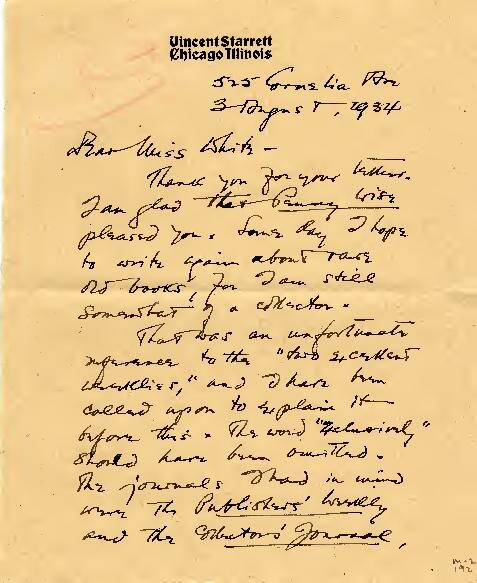 Vincent Starrett
Chicago Illinois
525 Cornelia Ave
3 August, 1934
Dear Miss White —
Thank you for your letter.
I am glad that Penny Wise
pleased you. Some day I hope
to write again about rare
old books, for I am still
somewhat of a collector.
That was an unfortunate
reference to the "two excellent
weeklies," and I have been
called upon to explain it
before this. The word "exclusively"
should have been omitted.
The journals I had in mind
were the Publishers' Weekly
and the Collectors' Journal,